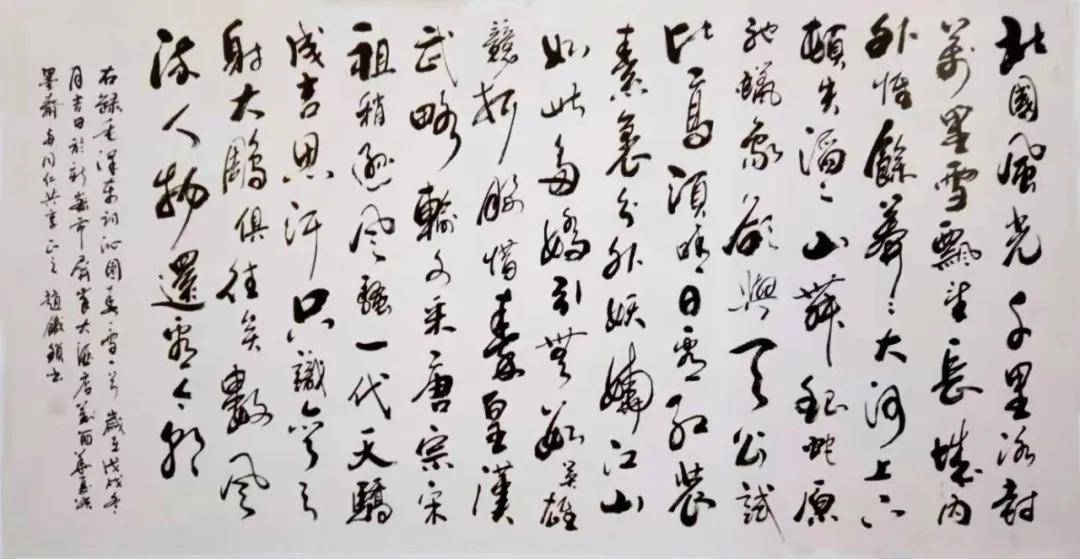 北國風光千里冰封
萬里雪飄望長城内
外惟餘莽〻大河上下
頓失滔〻山舞銀蛇原
馳蠟象欲與天公試
比高須晴日看紅裝
素裹分外妖嬈江山
如此多嬌引無數英雄
競折腰惜秦皇漢
武略輸文采唐宗宋
祖稍遜風騷一代天驕
成吉思汗只識彎弓
射大鵰俱往矣數風
流人物還看今朝
右録毛澤東詞沁園春雪一首 歲在戊戌冬
月吉日於新 市 大酒店
墨齋与同仁共享正之 趙鐵鎖书